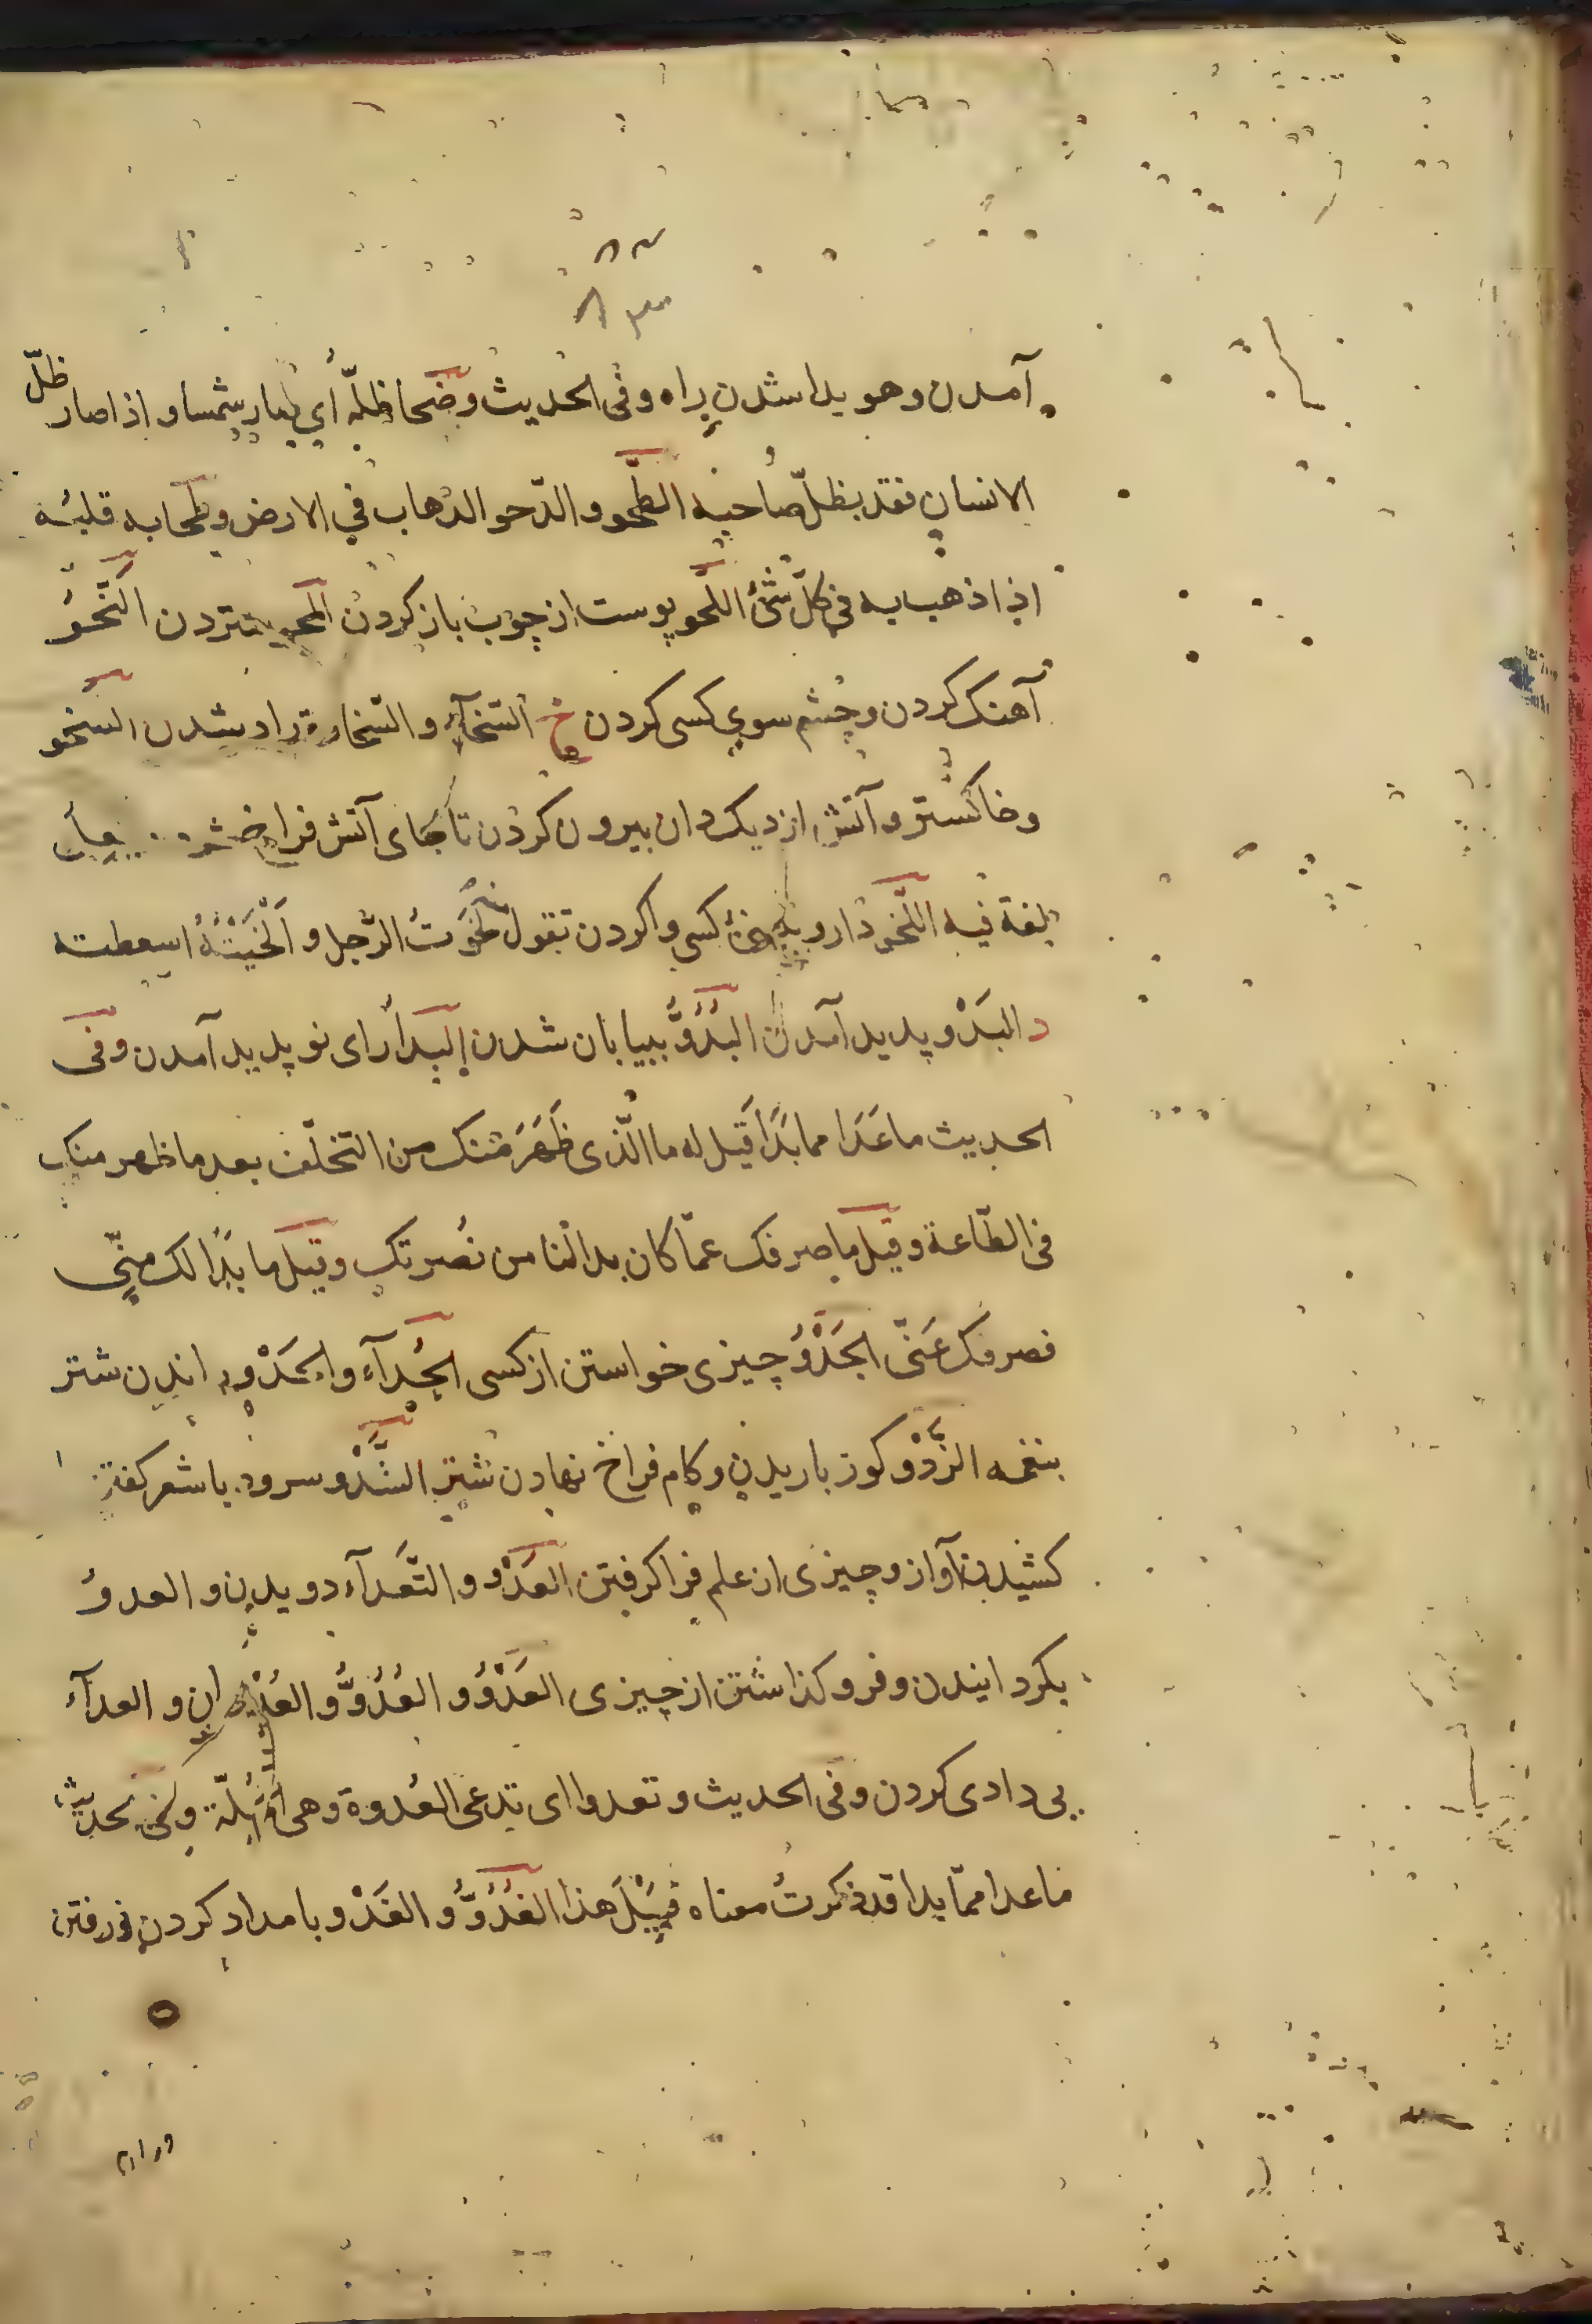 ۸۳
۸۳
آمدن وهويدا شدن راه وفى الحديث وضحا ظلّه أي صار شمسا و اذا صار ظلّ
الانسان فقد بظلّ صاحبه الطّحو والدّحو الذهاب في الارض وطحا به قلبُه
اذا ذهب به في كلّ شئ اللّحو پوست از چوب باز كردن المحو ستردن النَّحْوُ
آهنك كردن وچشم سوي كسى كردن خ السّخآء و السّخاوة راد شدن السخو
وخاكستر و آتش از ديك دان بيرون كردن تا جاى آتش فراخ شود
لغة فيه اللّخو دارو بينى كسى وا كردن تقول لخَوتُ الرّجل و اَلْخَيْتُهُ اسعطته
د البَدْو پديد آمدن البُدُوُّ ببيابان شدن البدآ راى نو پديد آمدن وفى
الحديث ما عَدَا مما بَدَا قيل له ما الّذى ظَهَرَ منك من التخلّف بعد ما ظهر منك
فى الطّاعة وقيل ما صرفك عمّا كان بدا لنا من نُصرتك وقيل ما بَدَا لك منّى
فصرفك عَنّى الجَدْوُ چيزى خواستن از كسى الحُدآء والحَدْو راندن شتر
بنغمه الزَّدْو كوز باريدن و كام فراخ نهادن شتر الشَّدْو سرود يا شعر كفتن
كشيدن آواز و چيزى از علم فرا كرفتن العَدْو و التَّعدآء دويدن و العدوُ
بكردانيدن وفرو كذاشتن از چيزى العَدْوُ و العُدُوُّ والعُدْوان و العدآء
بى دادى كردن وفى الحديث وتعدوا اى ترعى العُدوة وهى الخُلّة وفى حديث
ما عدا ممّا بدا قد ذكرتُ معناه قُبَيْلَ هذا الغُدُوُّ و الغَدْو بامداد كردن ورفتن